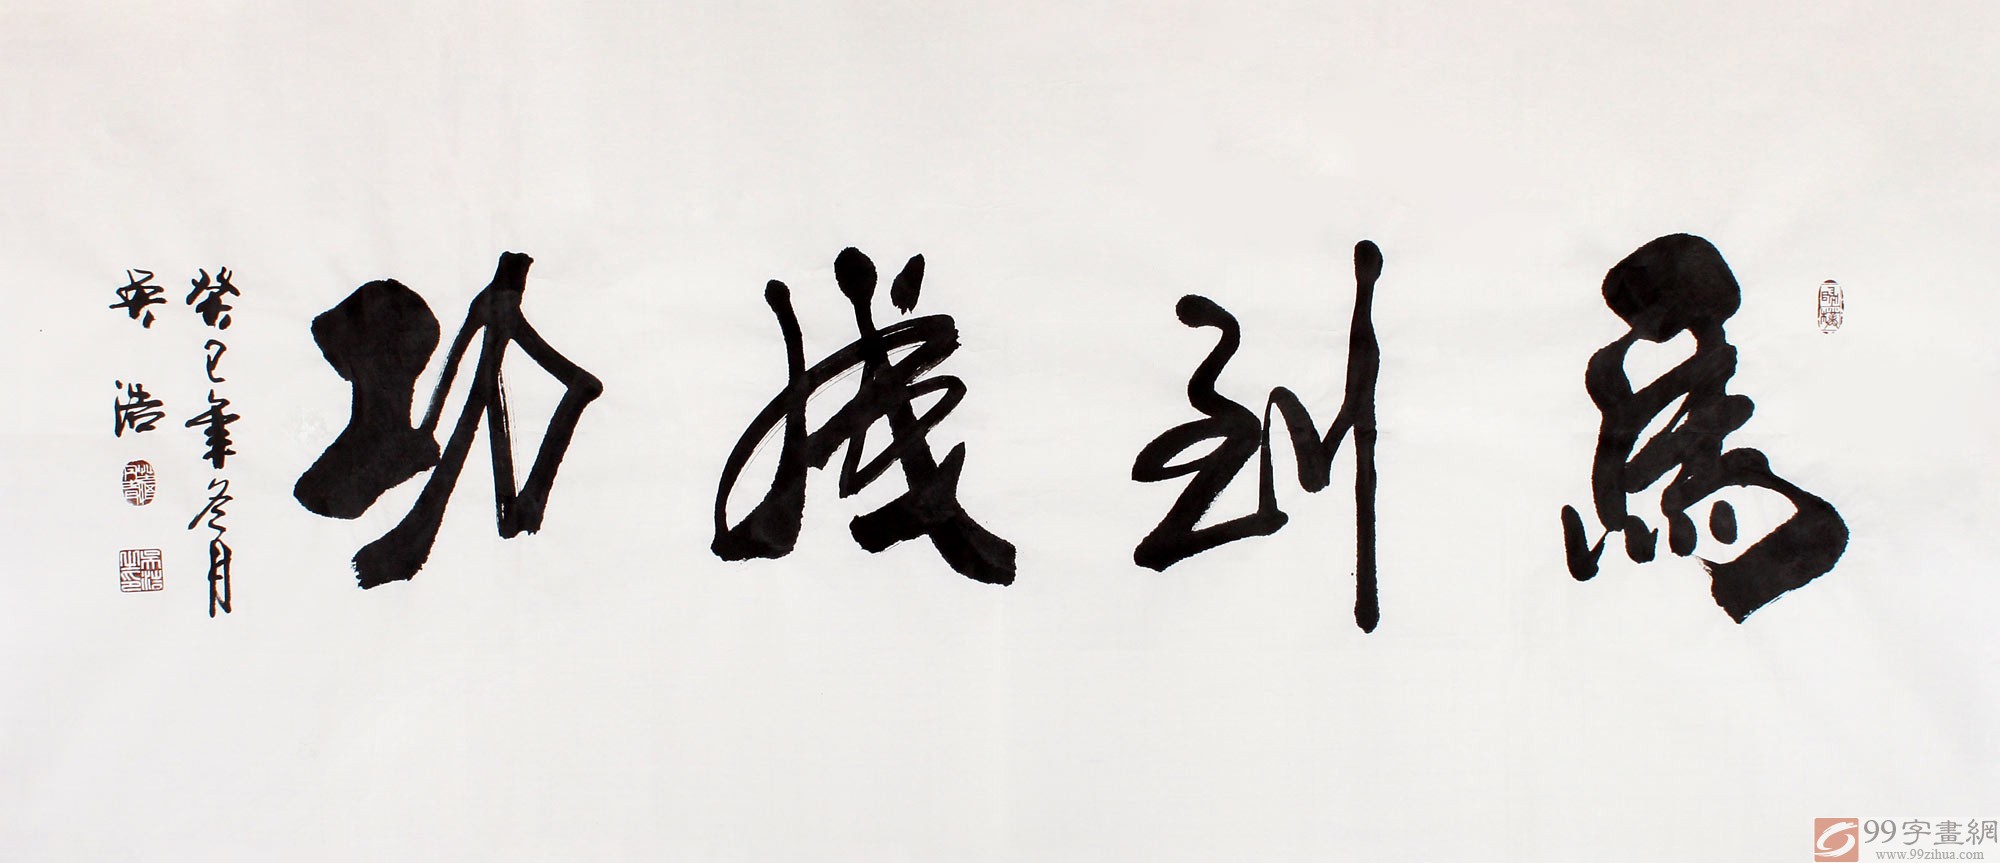 馬到成功
癸巳年冬月
吴浩
吴浩之印
99字畫網
www.99zihua.com